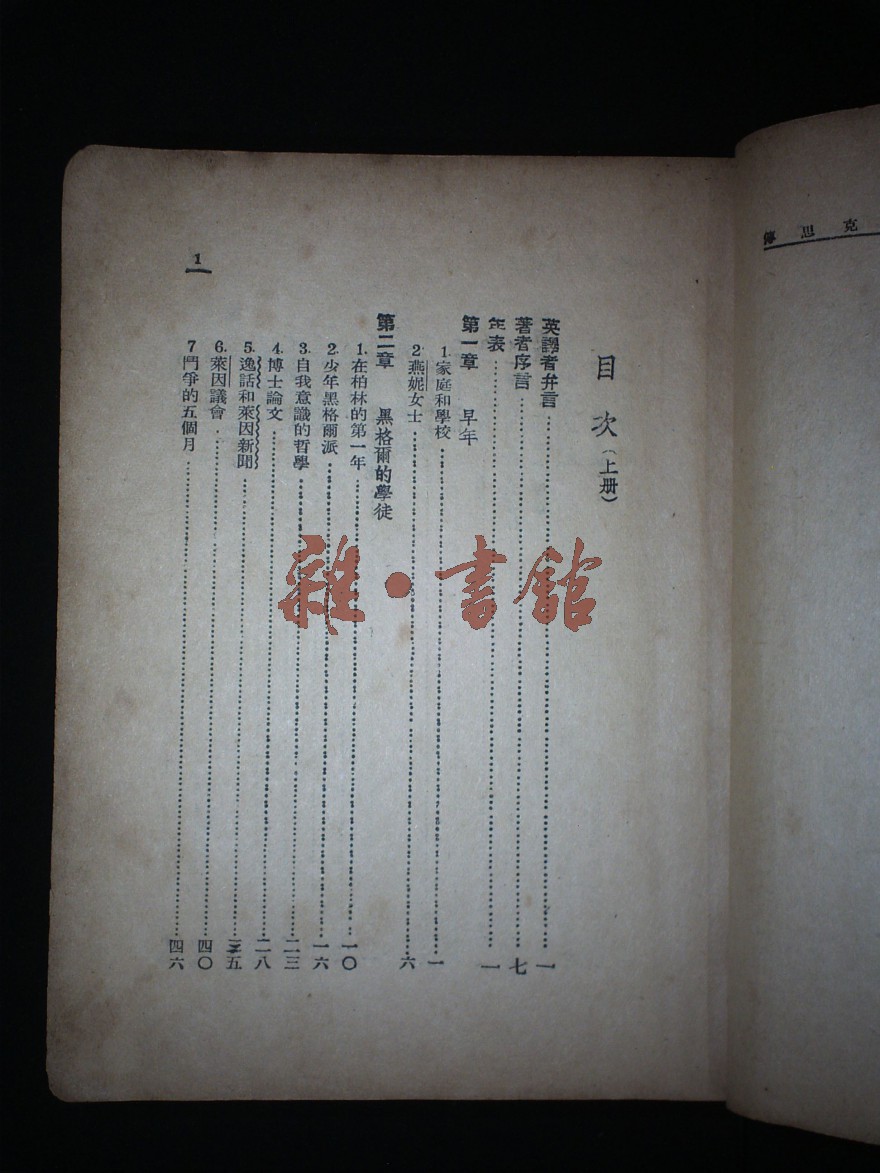 傳思克
目次（上册）
英譯者弁言……一
著者序言……七
年表……一
第一章 早年
1.家庭和學校……一
2燕妮女士……六
第二章 黑格爾的學徒
1.在柏林的第一年……一〇
2.少年黑格爾派……一六
3.自我意識的哲學……二三
4.博士論文……二八
5.逸話和萊因新聞……三五
6.萊因議會……四〇
7鬥爭的五個月……四六
1
雜·書館